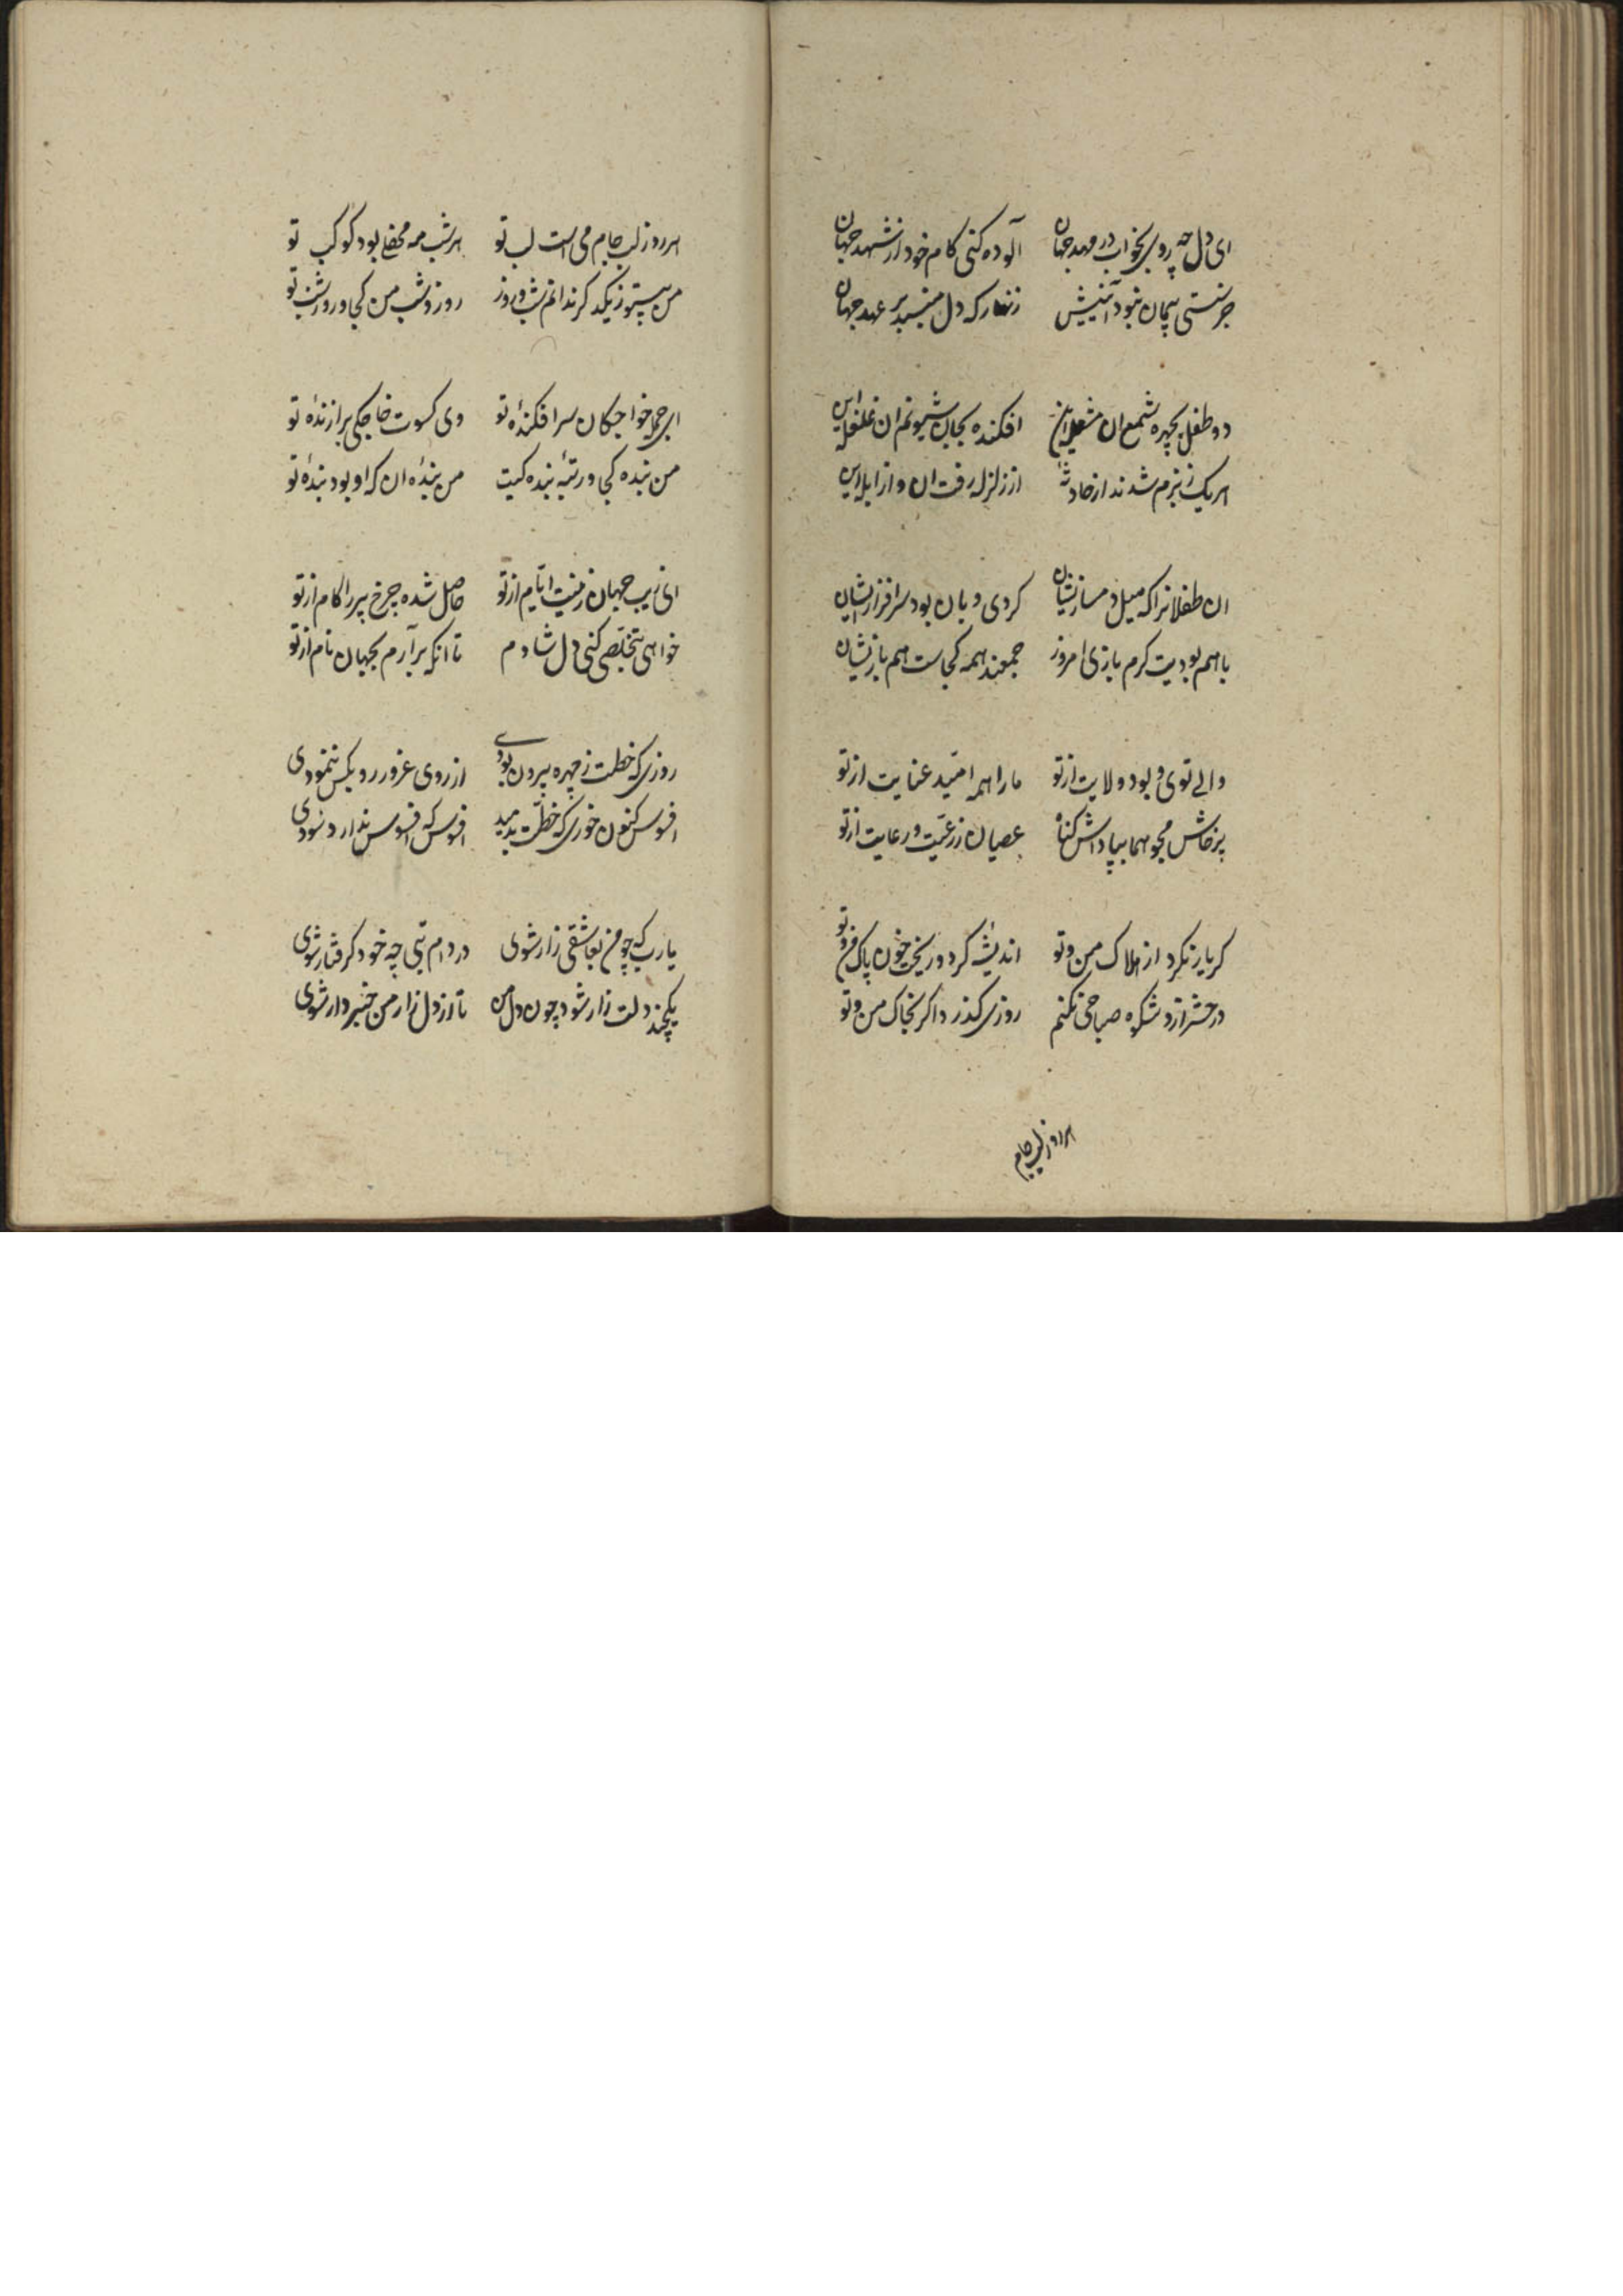 ای دل چه روی بخواب در مهد جهان آلوده کنی کام خود از شهد جهان
جز سستی پیمان نبود آئینش زنهار که دل مبند بر عهد جهان
دو طفل بچهره شمع ان مشعله این افکنده بجان شیونم ان غلغله این
هریک ز بزم شدند از حادثهٔ از زلزله رفت ان و از ابله این
ان طفلانرا که میل دمسازیشان کردی و بان بود سرافرازیشان
باهم بودیت کرم بازی امروز جمعند همه کجاست هم بازیشان
والی توی و بود ولایت از تو ما را همه امّید عنایت از تو
پرخاش مجو بپاداش کناه عصیان ز رعیّت و رعایت از تو
کر یار نکرد از هلاک من و تو اندیشه کرد و ریخت خون پاک من و تو
در حشر ازو شکوه صباحی نکنم روزی کذرد اکر بخاک من و تو
هر روز لب جام
هر روز لب جام می است لب تو هر شب مه محفلی بود کوکب تو
من بیتو ز یکدکر ندانم شب و روز روز و شب من کجا و روز و شب تو
ای جمله خواجکان سرافکندهٔ تو وی کسوت خواجکی برازندهٔ تو
من بنده کجا و رتبهٔ بنده کیت من بندهٔ ان که او بود بندهٔ تو
ای زیب جهان زینت ایّام از تو حاصل شده چرخ پیر را کام از تو
خواهی بتخلّصی کنی دل شادم تا انکه برآرم بجهان نام از تو
روزی که خطت ز چهره بیرون بودی از روی غرور رو بکس ننمودی
افسوس کنون خوری که خطّت بدمید افسوس که افسوس ندارد سودی
یا رب که چو من بعاشقی زار شوی در دام بتی چه خود کرفتار شوی
یکچند دلت زار شود چون دل من تا از دل زار من خبردار شوی